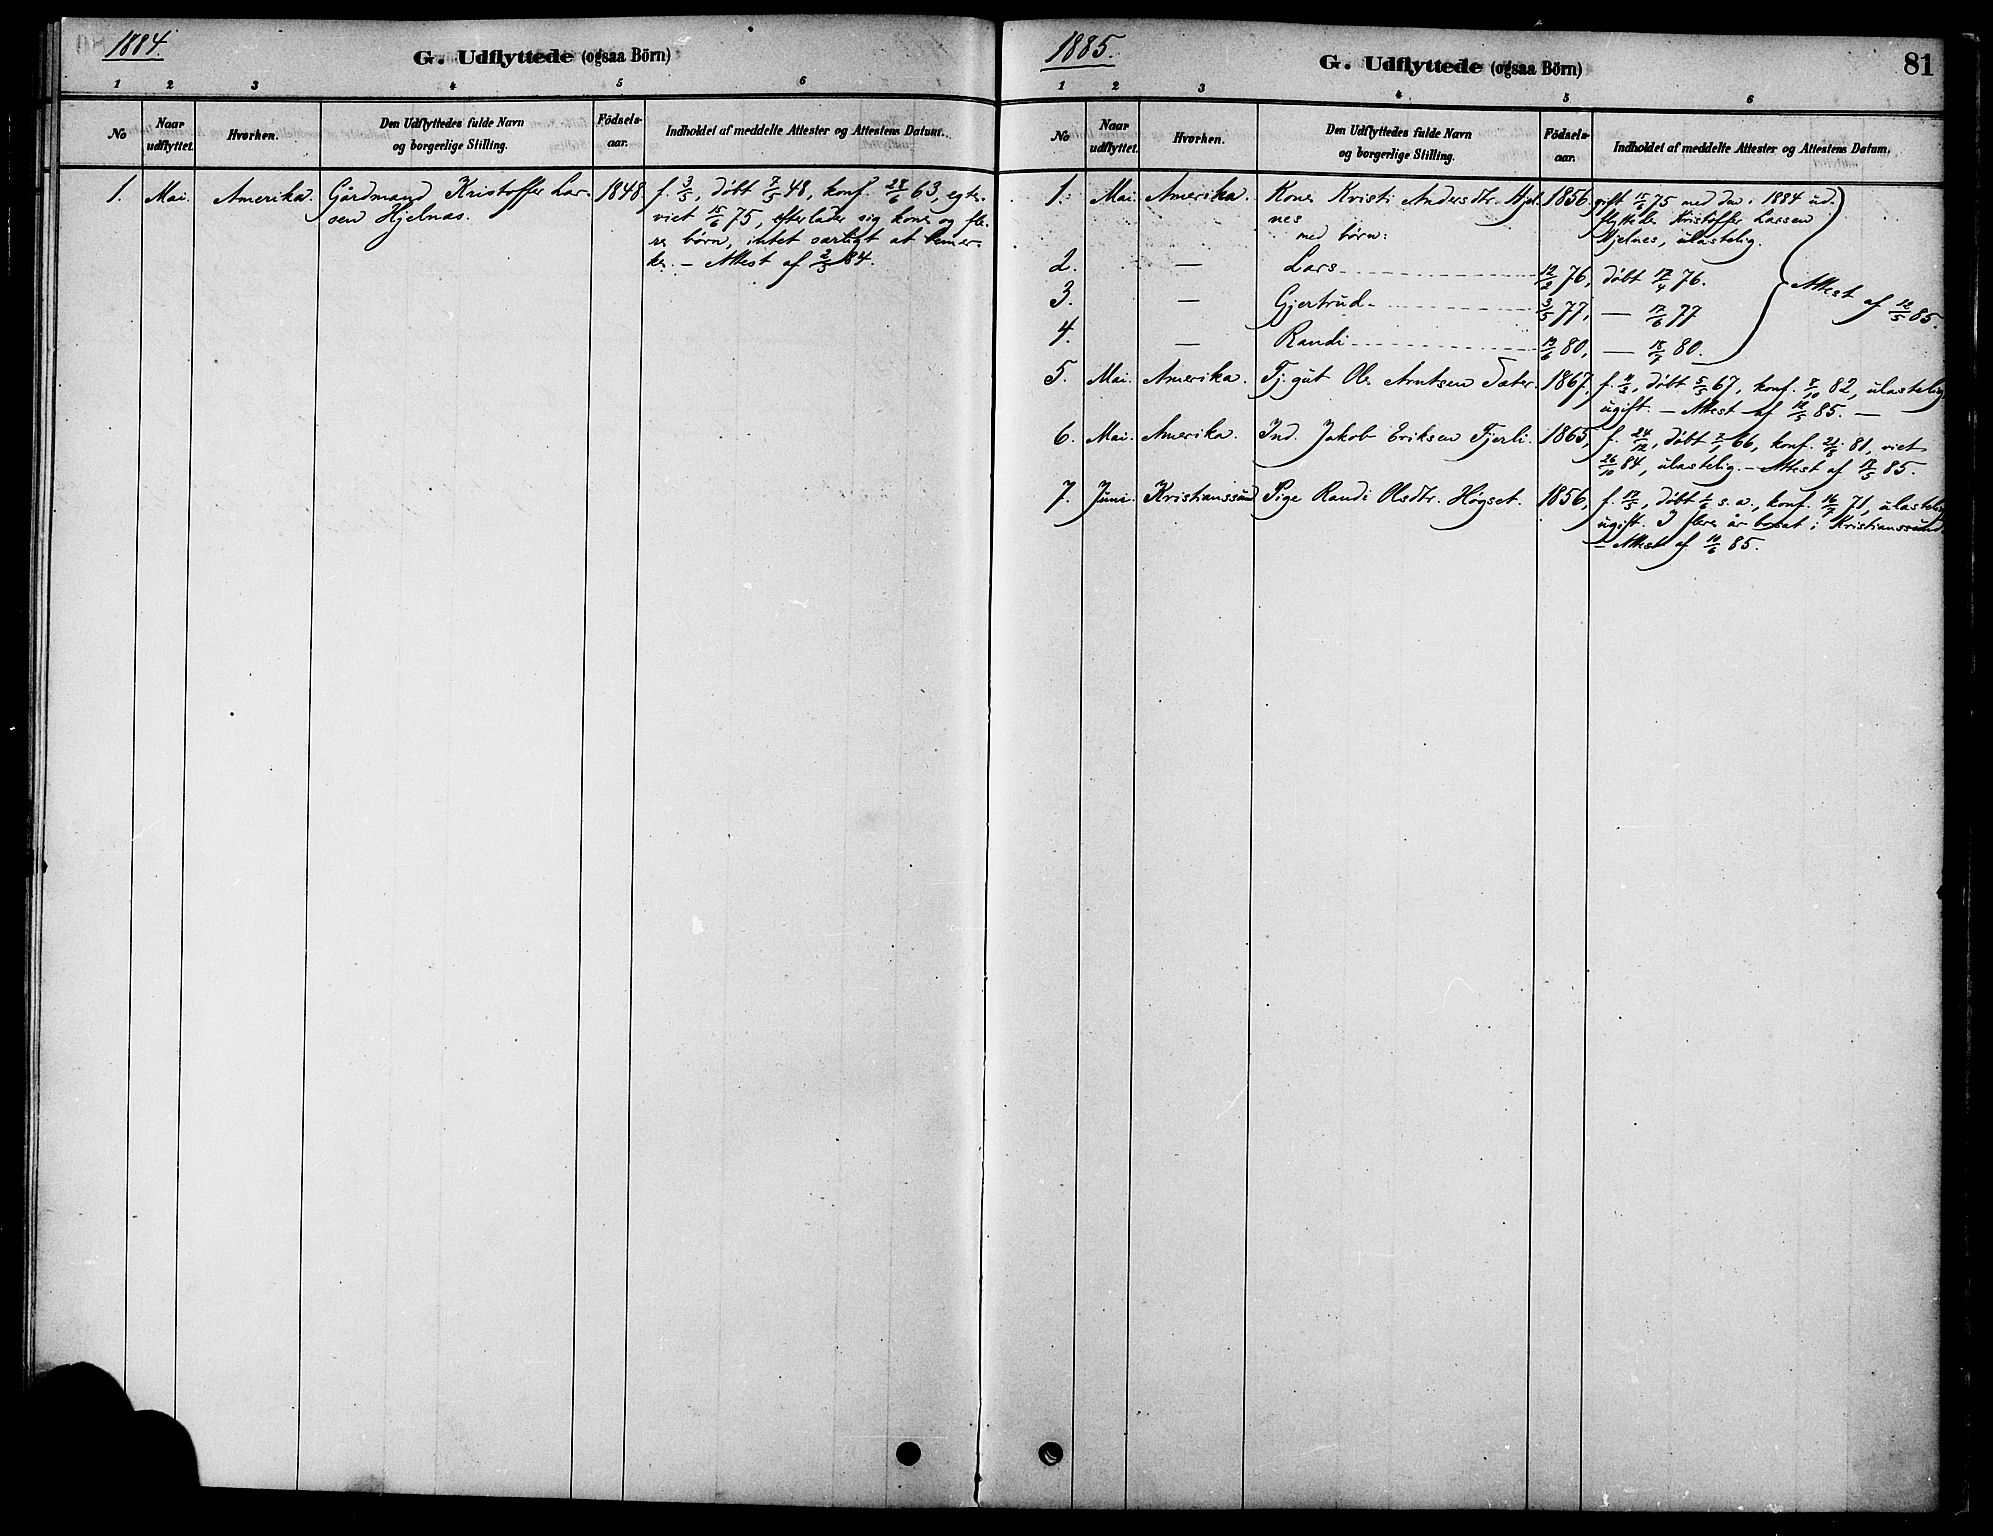 1884.
G. Udflyttede (ogsaa Börn)
1 2 3 4 5 6
No
Naar udflyttet.
Hvorhen.
Den Udflyttedes fulde Navn
og borgerlige Stilling.
Födsels-
aar.
Indholdet af meddelte Attester og Attestens Datum.
1. Mai. Amerika. Gårdmand Kristoffer Lar- 1848 f. 3/5, døbt 7/5 48, konf. 28/6 63, egte-
sen Hjelnæs. viet 15/6 75, efterlader sig kone og fle-
re børn, intet særligt at bemær-
ke. – Attest af 2/5 84.
1885.
G. Udflyttede (ogsaa Börn)
81
1 2 3 4 5 6
No
Naar
udflyttet.
Hvorhen.
Den Udflyttedes fulde Navn
og borgerlige Stilling.
Födsels-
aar.
Indholdet af meddelte Attester og Attestens Datum.
1. Mai. Amerika. Kone Kristi Andersdtr. Hjel- 1856. gift 15/6 75 med den i 1884 ud-
nes flyttede Kristoffer Larsen
med børn: Hjelnes, ulastelig.
2. — Lars 12/2 76, døbt 17/4 76.
3. — Gjertrud 3/5 77, — 17/6 77
Attest af 12/5 85.
4. — Randi 13/6 80, — 18/7 80.
5. Mai. Amerika. Tj. gut Ole Arntsen Sæter. 1867, f. 11/3, døbt 5/5 67, konf. 8/10 82, ulastelig
ugift. – Attest af 12/5 85. –
6. Mai. Amerika. Ind. Jakob Eriksen Fjerli. 1865, f. 24/12, døbt 7/1 66, konf. 21/8 81, viet
26/10 84, ulastelig. – Attest af 12/5 85.
7. Juni. Kristianssund Pige Randi Olsdtr. Høgset. 1856, f. 17/5, døbt 1/6 s.a., konf. 16/7 71, ulastelig
ugift. I flere år bosat i Kristianssund.
– Attest af 10/6 85.